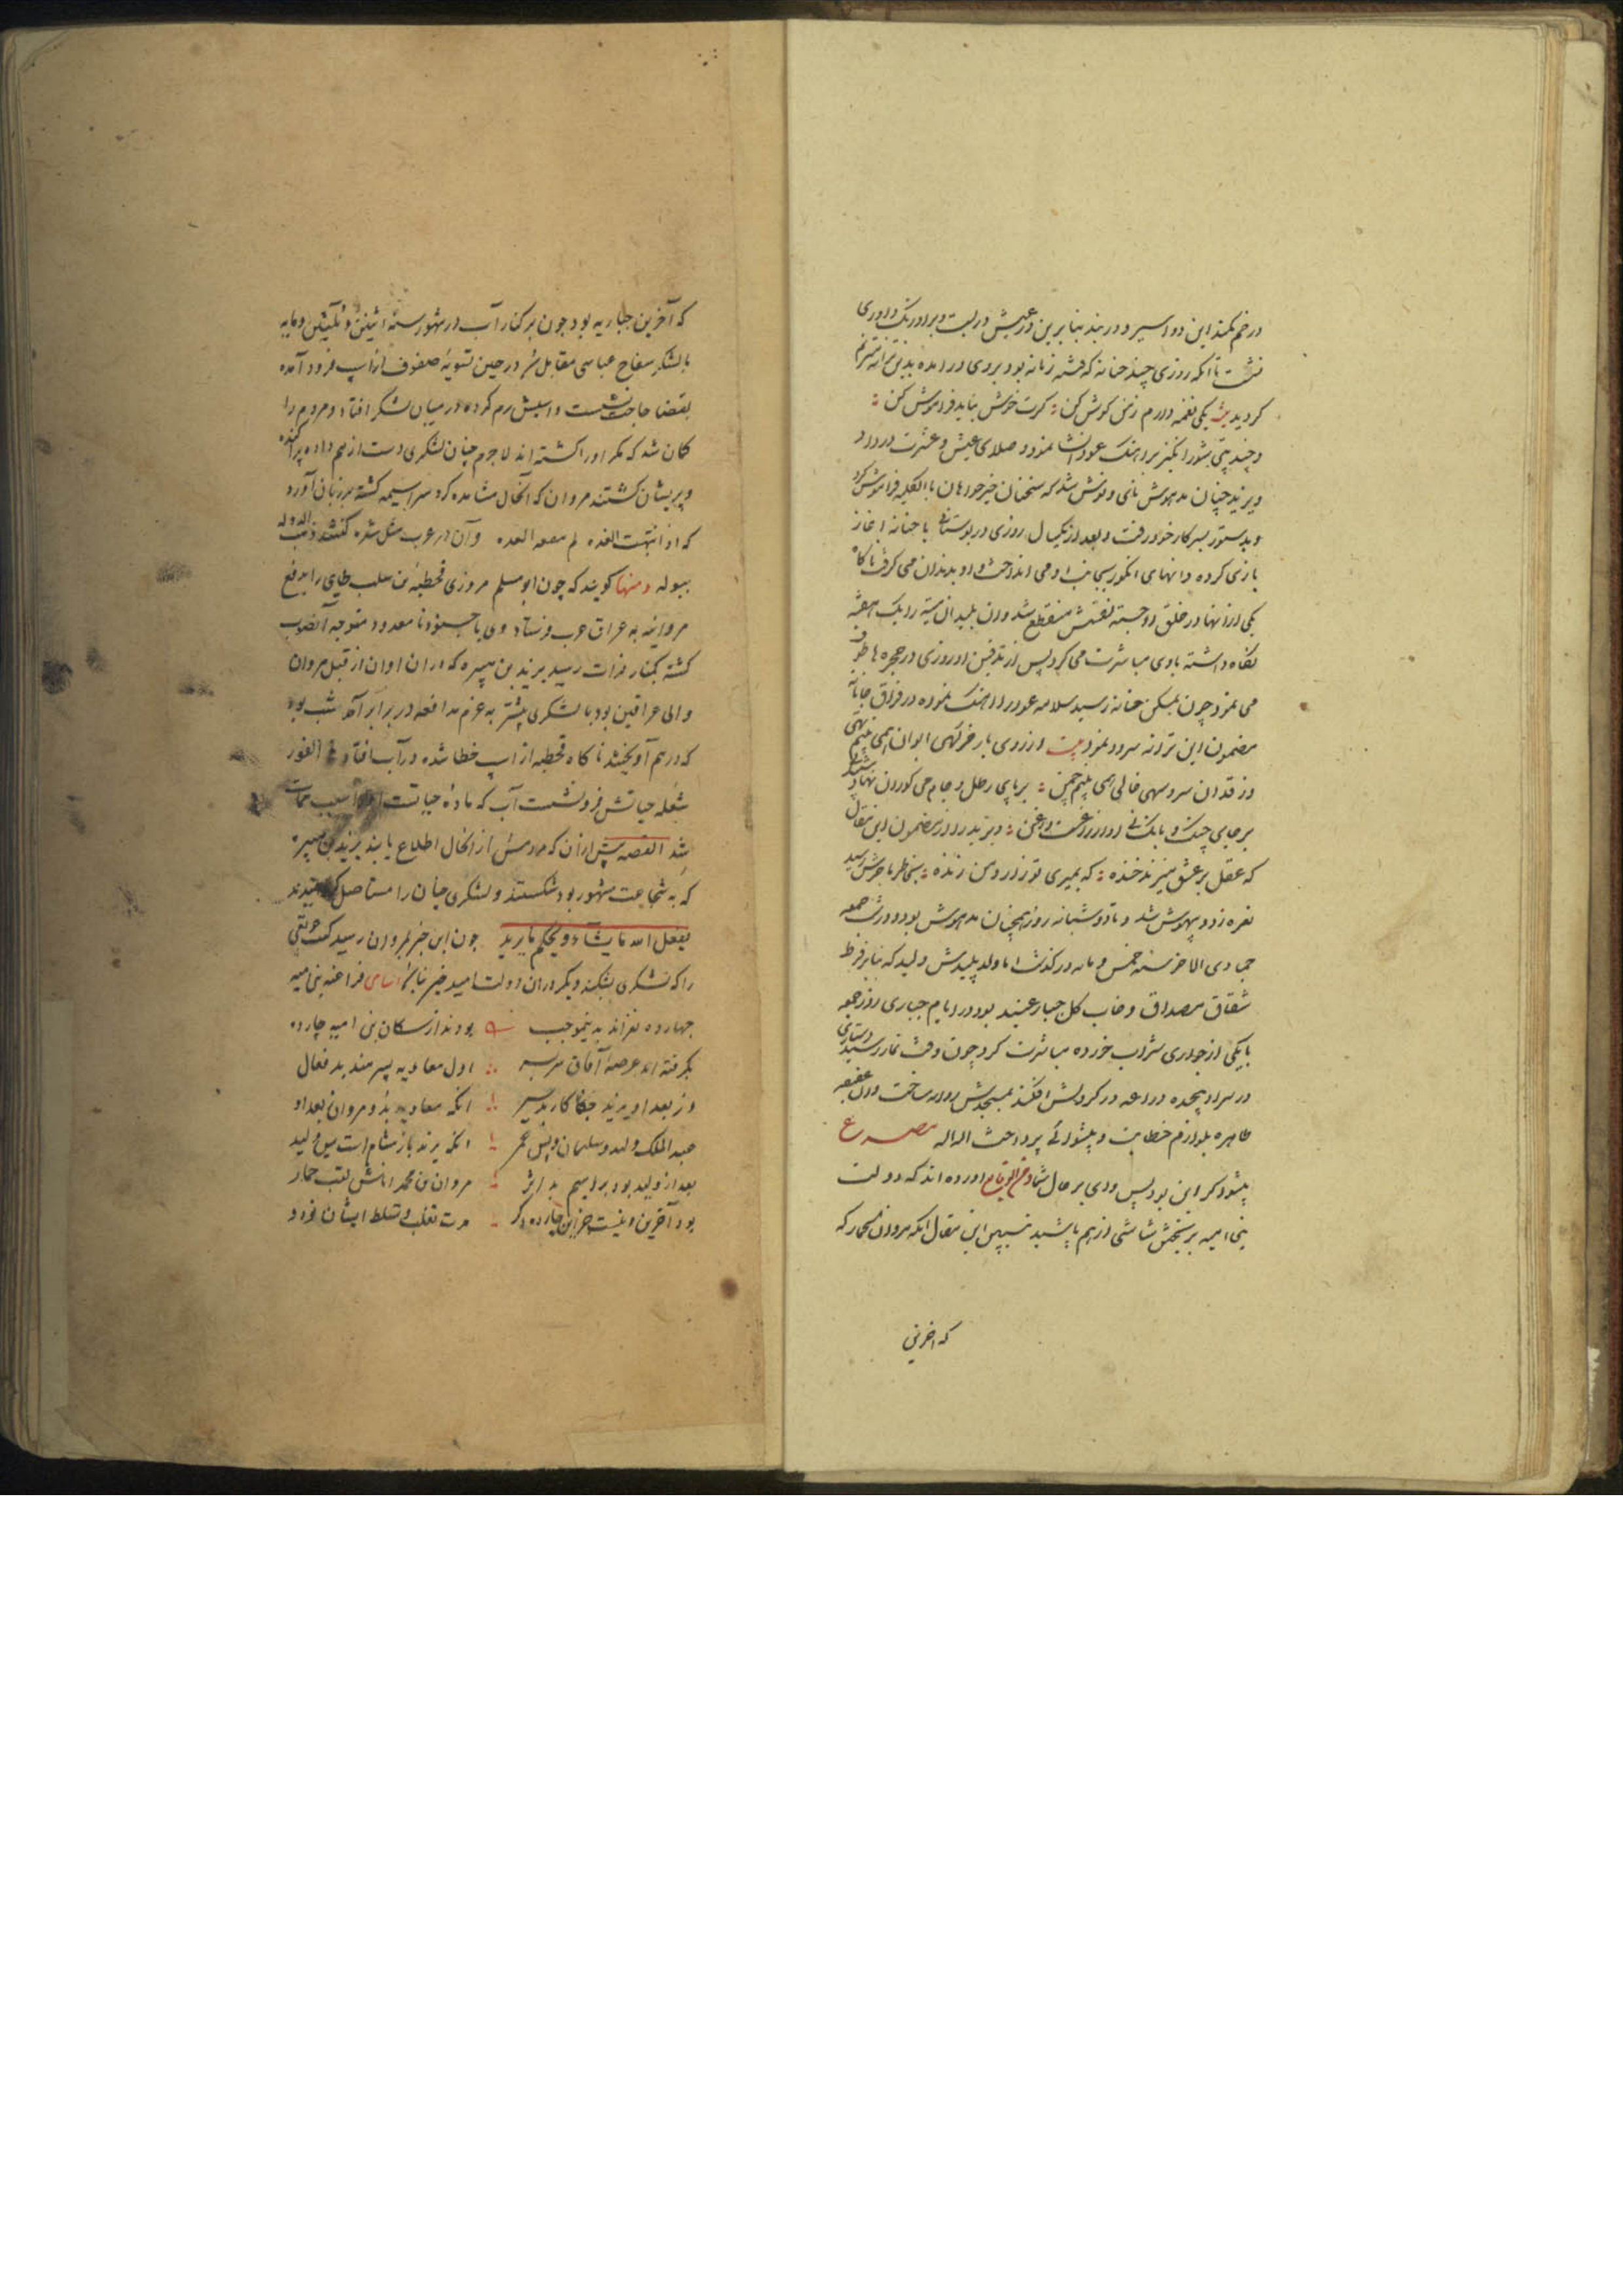 در خم کمند این دو اسیر و در بند بنابرین در عیش در بست و بر اورنک داوری
نشست تا آنکه روزی حنانه که فتنه زمانه بود بروی در امده بدین ترانه مترنم
کردید بیت یکی نغمه دارم ز من کوش کن کرت خوش نیاید فراموش کن
و چند بیتی شورانکیز بر اهنک عود انشا نمود و صلای عیش و عشرت در داد
و یزید چنان مدهوش نای و نوش شد که سخنان خیر خواهان بالکلیه فراموش کرد
و بدستور بسر کار خود رفت و بعد از یکسال روزی در بوستانی با حنانه اغاز
بازی کرده دانهای انکور بجانب او می انداخت و او بدندان می کرفت ناکاه
یکی از انها در حلق او جسته نفسش منقطع شد و ان پلید ان میته را یک هفته
نکاه داشته با وی مباشرت می کرد پس از تدفین او روزی در حجره ها طوف
می نمود چون بمسکن حنانه رسید سلامه عود در اهنک نموده در فراق جانان
مضمون این ترانه سرود نمود بیت از روی یار خرکهی ایوان همی بینم تهی
وز قد ان سرو سهی خالی همی بینم چمن بر جای رطل و جام می کوران نهادستند پی
بر جای چنک و نای و نی اواز زاغست و زغن و یزید را از مضمون این مقال
که عقل بر عشق میزند خنده که بمیری تو زار و من زنده بخاطر ناخوش رسید
نعره زد و بیهوش شد و تا دو شبانه روز همچنان مدهوش بود و در شب جمعه
جمادی الاخر سنه خمس و مایه در کذشت اما ولد پلیدش ولید که بنا بر فرط
شقاق مصداق و خاب کل جبار عنید بود در ایام جباری روز جمعه
با یکی از جواری شراب خورده مباشرت کرد چون وقت نماز رسید دستاری
در سر او پیچیده دراعه در کردنش افکند بمسجدش روانه ساخت و ان عفیفه
طاهره بلوازم خطابت و پیشوائی پرداخت مصرع
پیشوا کر این بود پس وای بر حال شما و من الوقایع اورده اند که دولت
بنی امیه بر شخص شاشی از هم پاشید تبیین این مقال انکه مروان حمار که
که اخرین
که آخرین جباریه بود چون بر کنار آب در شهور سنه اثنین و ثلثین و مایه
با لشکر سفاح عباسی مقابل شد در حین تسویه صفوف از اسب فرود آمده
بقضا حاجت نشست و اسبش رم کرده در میان لشکر افتاد و مردم را
کمان شد که مکر او را کشته اند لا جرم چنان لشکری دست از هم داده پراکنده
و پریشان کشتند مروان که آنحال مشاهده کرد سراسیمه کشته بر زبان آورد
که اذا انتهت المده لم ینفعه العده و آن در عرب مثل شده کفتند ذهب الدوله
ببوله و منها کویند که چون ابو مسلم مروزی قحطبه بن طایی را بدفع
مروانیه به عراق عرب فرستاد وی با جنود نامعدود متوجه آنصوب
کشته بکنار فرات رسید یزید بن هبیره که در ان اوان از قبل مروان
والی عراقین بود با لشکری بیشتر به عزم مدافعه در برابر آمد شب بود
که در هم آویختند ناکاه قحطبه از اسب خطا شده در آب افتاد فی الفور
شعله حیاتش فرو نشست آب که ماده حیاتست سبب ممات
شد القصه پیش از ان که مردمش از انحال اطلاع یابند یزید بن هبیره
که به شجاعت مشهور بود شکستند و لشکری چنان را مستاصل کردند
یفعل الله ما یشاء و یحکم ما یرید چون این خبر بمروان رسید کفت
را که لشکری بشکند دیکر در ان دولت امید خیر نباید اسامی فراعنه بنی امیه
چهارده نفراند بدینموجب بودند از سکان بنی امیه چارده
بکرفته اند عرصه آفاق سر بسر اول معاویه پسر هند بد فعال
وز بعد او یزید جفا کار انکه معاویه بد و مروان بعد او
عبد الملک ولید و سلیمان و پس عمر انکه یزید باز هشام است پس ولید
بعد از ولید بود براهیم بد اثر مروان بن محمد انانش لقب حمار
بود آخرین و نیست جز این چارده دکر مدت تغلب و تسلط ایشان نود و